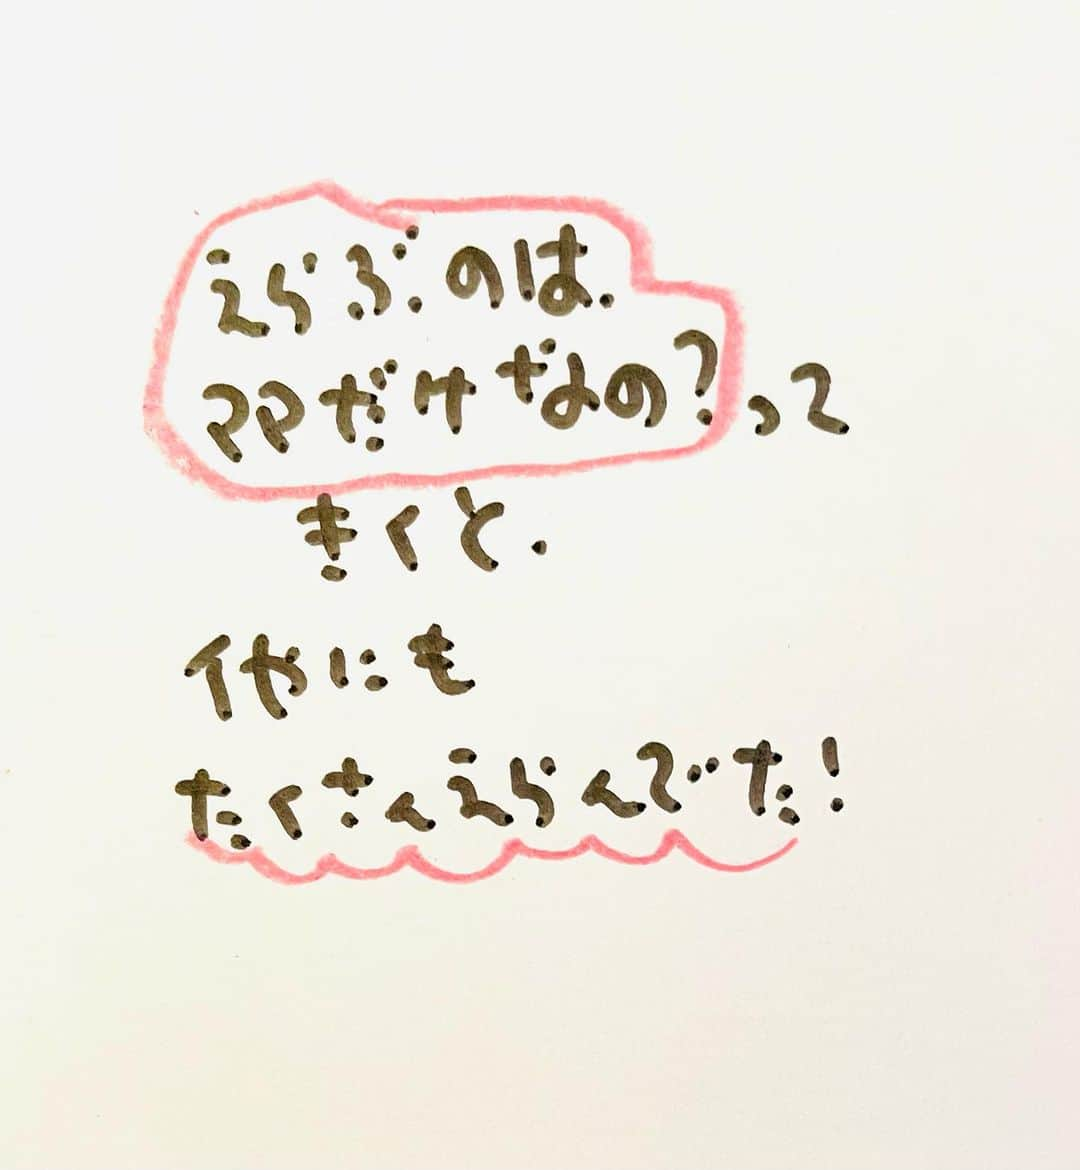 えらぶのは.
ママだけなの?って
きくと.
他にも
たくさんえらんでた!